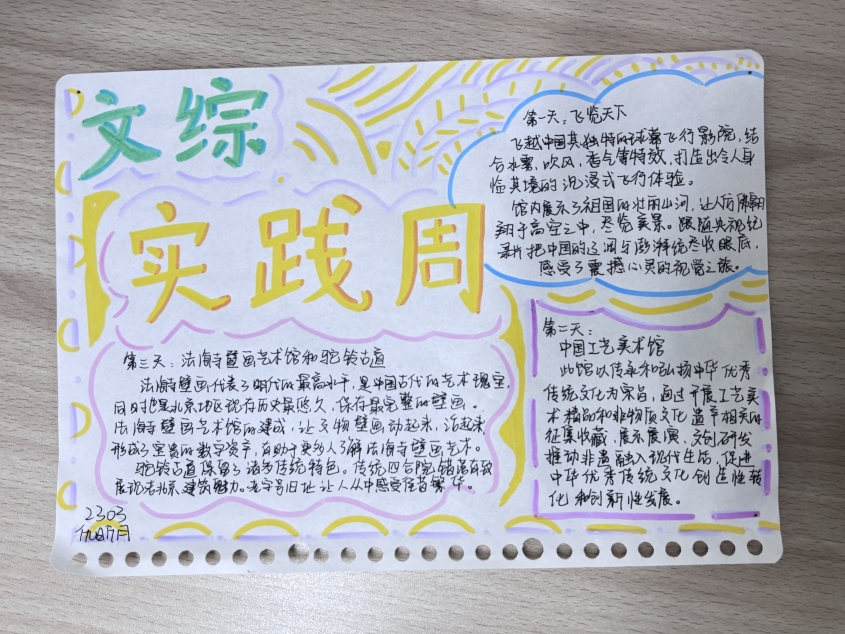 文综
实践周
第一天：飞览天下
飞越中国其独特的球幕飞行影院，结
合水雾，吹风，香气等特效，打造出令人身
临其境的沉浸式飞行体验。
馆内展示了祖国的壮丽山河，让人们翱
翔于高空之中，尽览美景。跟随央视纪
录片把中国的辽阔与澎湃统尽收眼底，
感受了震撼心灵的视觉之旅。
第二天：
中国工艺美术馆
此馆以传承和弘扬中华优秀
传统文化为宗旨，通过开展工艺美
术精品和非物质文化遗产相关的
征集收藏，展示展演、文创研发
推动非遗融入现代生活，促进
中华优秀传统文化创造性转
化和创新性发展。
第三天：法海寺壁画艺术馆和驼铃古道
法海寺壁画代表了明代的最高水平，是中国古代的艺术瑰宝，
同时也是北京地区现存历史最悠久，保存最完整的壁画。
法海寺壁画艺术馆的建成，让文物壁画动起来，活起来，
形成了宝贵的数字资产，有助于更多人了解法海寺壁画艺术。
驼铃古道保留了诸多传统特色。传统四合院错落有致
展现老北京建筑魅力。老字号旧址让人从中感受往昔繁华。
2303